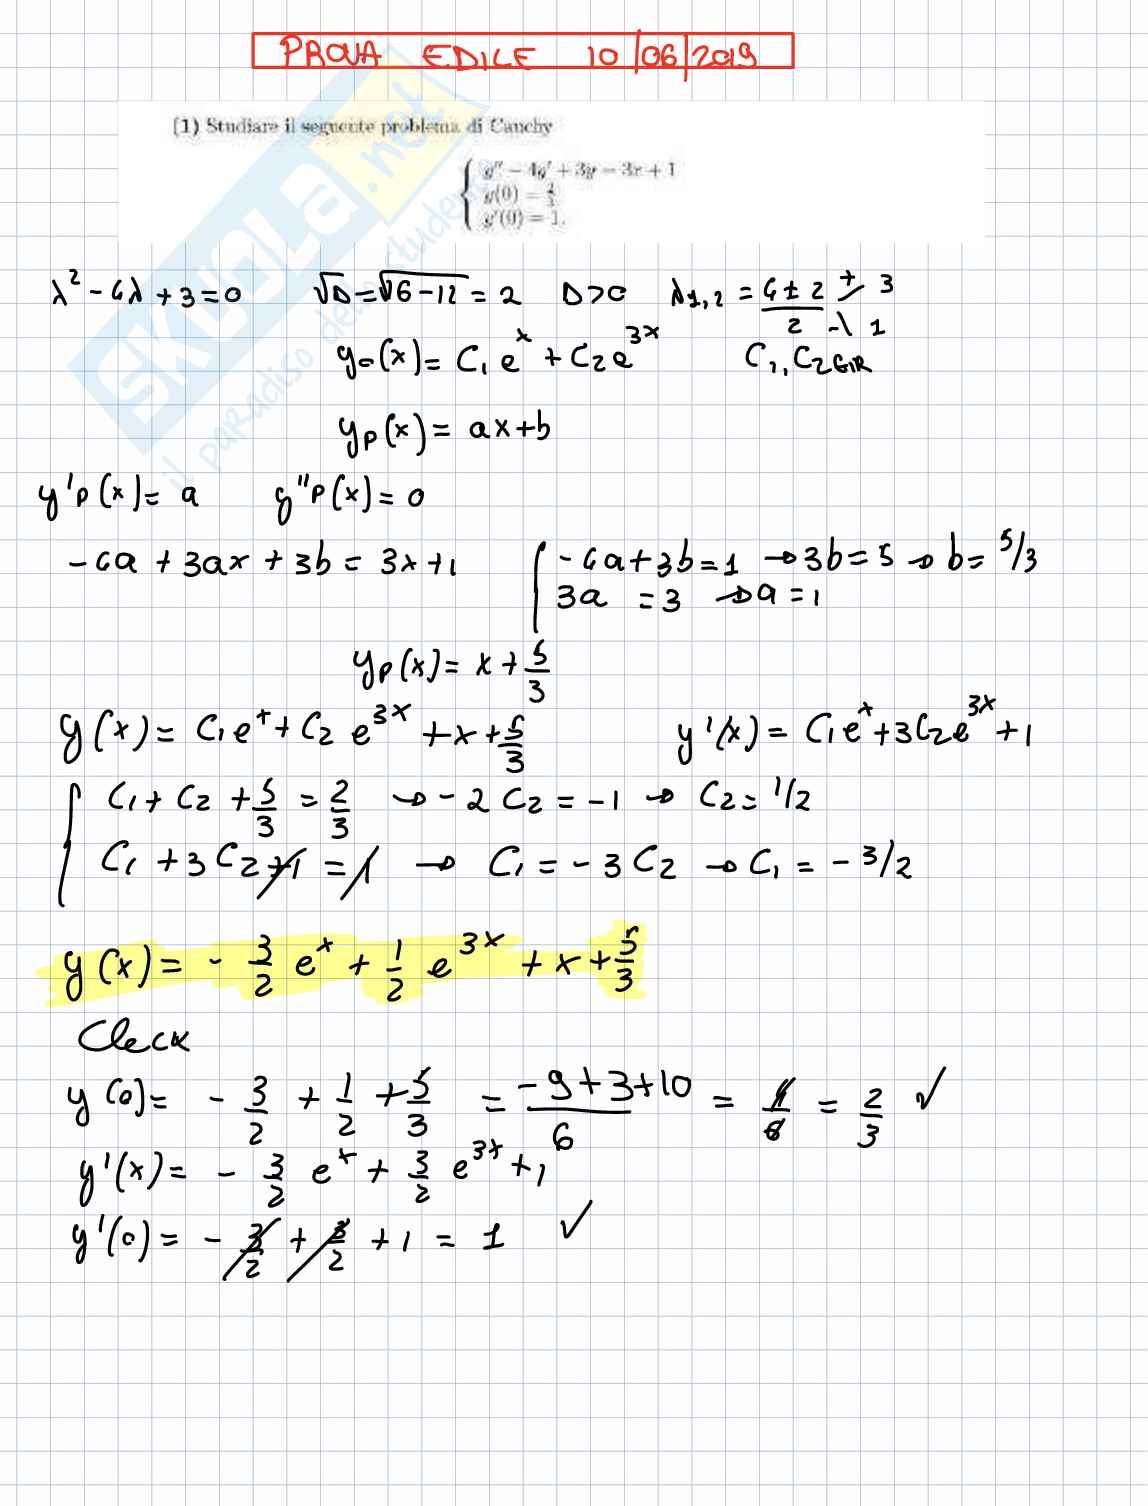 PROVA EDILE 10/06/2019
(1) Studiare il seguente problema di Cauchy
y'' − 4y' + 3y = 3x + 1
y(0) = 2/3
y'(0) = 1.
SKUOLA.net
il paradiso dello studente
λ² - 4λ + 3 = 0 √Δ = √16-12 = 2 Δ>0 λ1,2 = (4 ± 2)/2 + 3 - 1
y₀(x) = C₁ eˣ + C₂ e³ˣ C₁, C₂ ∈ ℝ
yp(x) = ax+b
y'p(x) = a y''p(x) = 0
-4a + 3ax + 3b = 3x+1 { -4a+3b=1 → 3b=5 → b=5/3
3a = 3 → a=1
yp(x) = x + 5/3
y(x) = C₁eˣ + C₂ e³ˣ + x + 5/3 y'(x) = C₁eˣ + 3C₂e³ˣ + 1
{ C₁ + C₂ + 5/3 = 2/3 → -2 C₂ = -1 → C₂ = 1/2
C₁ + 3C₂ + 1 = 1 → C₁ = -3C₂ → C₁ = -3/2
y(x) = - 3/2 eˣ + 1/2 e³ˣ + x + 5/3
Check
y(0) = - 3/2 + 1/2 + 5/3 = (-9+3+10)/6 = 4/6 = 2/3 ✓
y'(x) = - 3/2 eˣ + 3/2 e³ˣ + 1
y'(0) = - 3/2 + 3/2 + 1 = 1 ✓